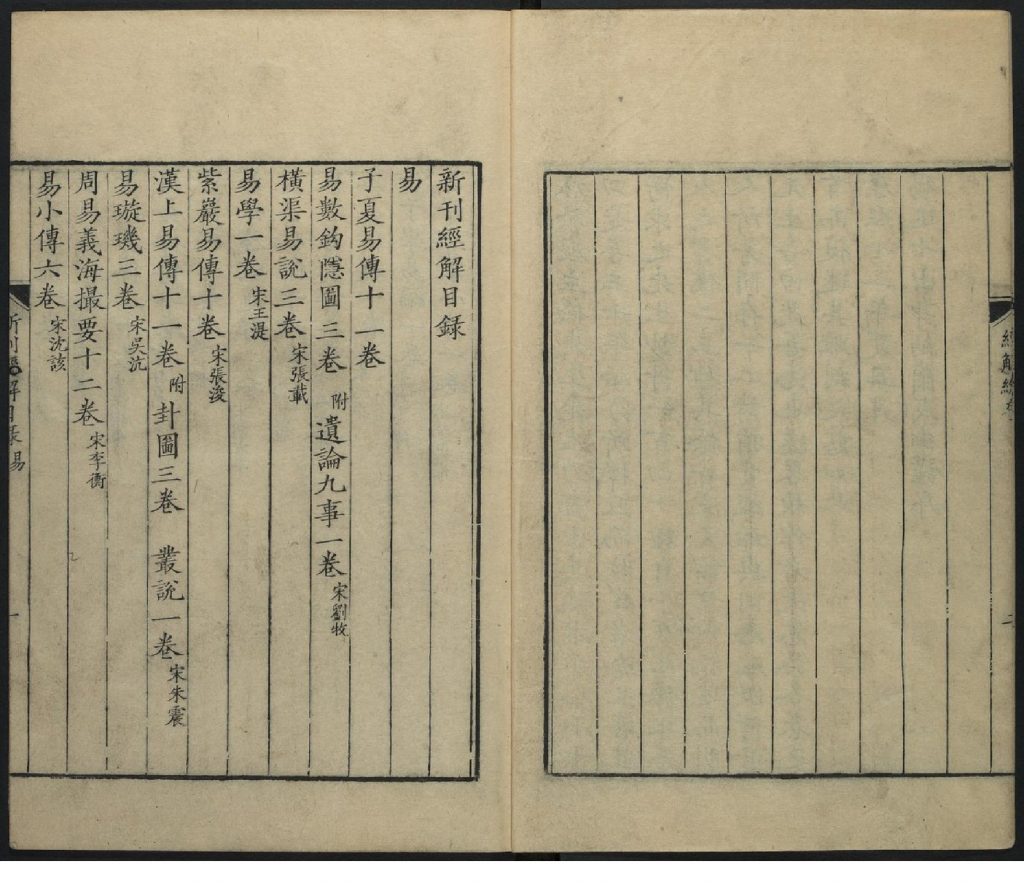 新刊經解目録
易
子夏易傳十一卷
易數鈎隱圖三卷 附遺論九事一卷 宋劉牧
橫渠易說三卷 宋張載
易學一卷 宋王湜
紫巖易傳十卷 宋張浚
漢上易傳十一卷 附卦圖三卷 叢說一卷 宋朱震
易璇璣三卷 宋吳沆
周易義海撮要十二卷 宋李衡
易小傳六卷 宋沈該
一